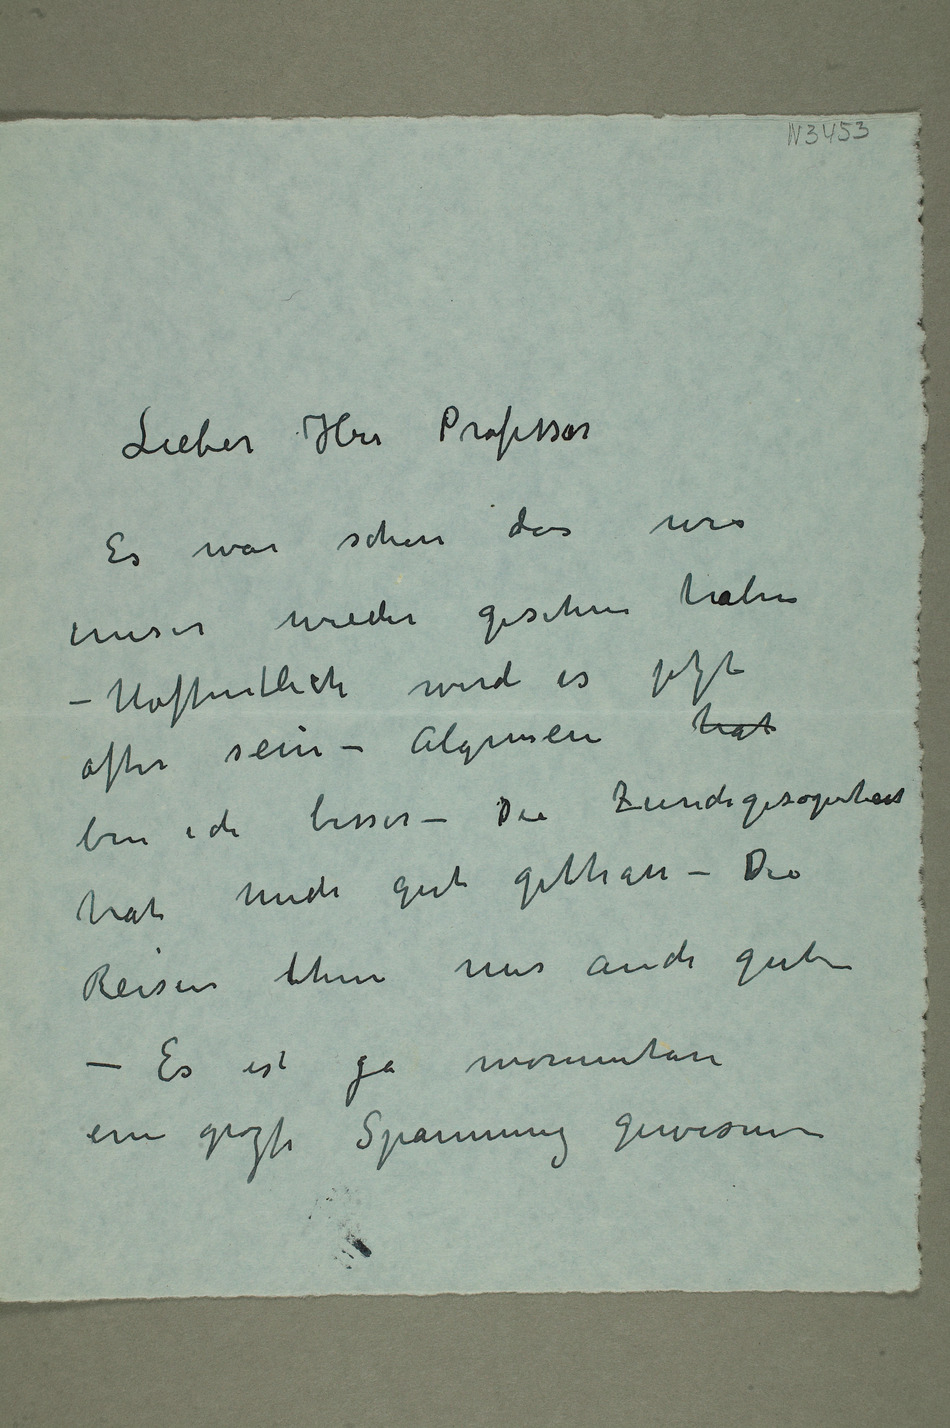 N3453
Lieber Herr Professor
Es war schön das wir
unser wieder gesehen haben
– Hoffentlich wird es jetzt
öfter sein – Algemein hat
bin ich besser – Die
hat mich gut gethan – Die
Reisen thun mir auch gut –
– Es ist ja momentan
eine große Spannung gewesen –